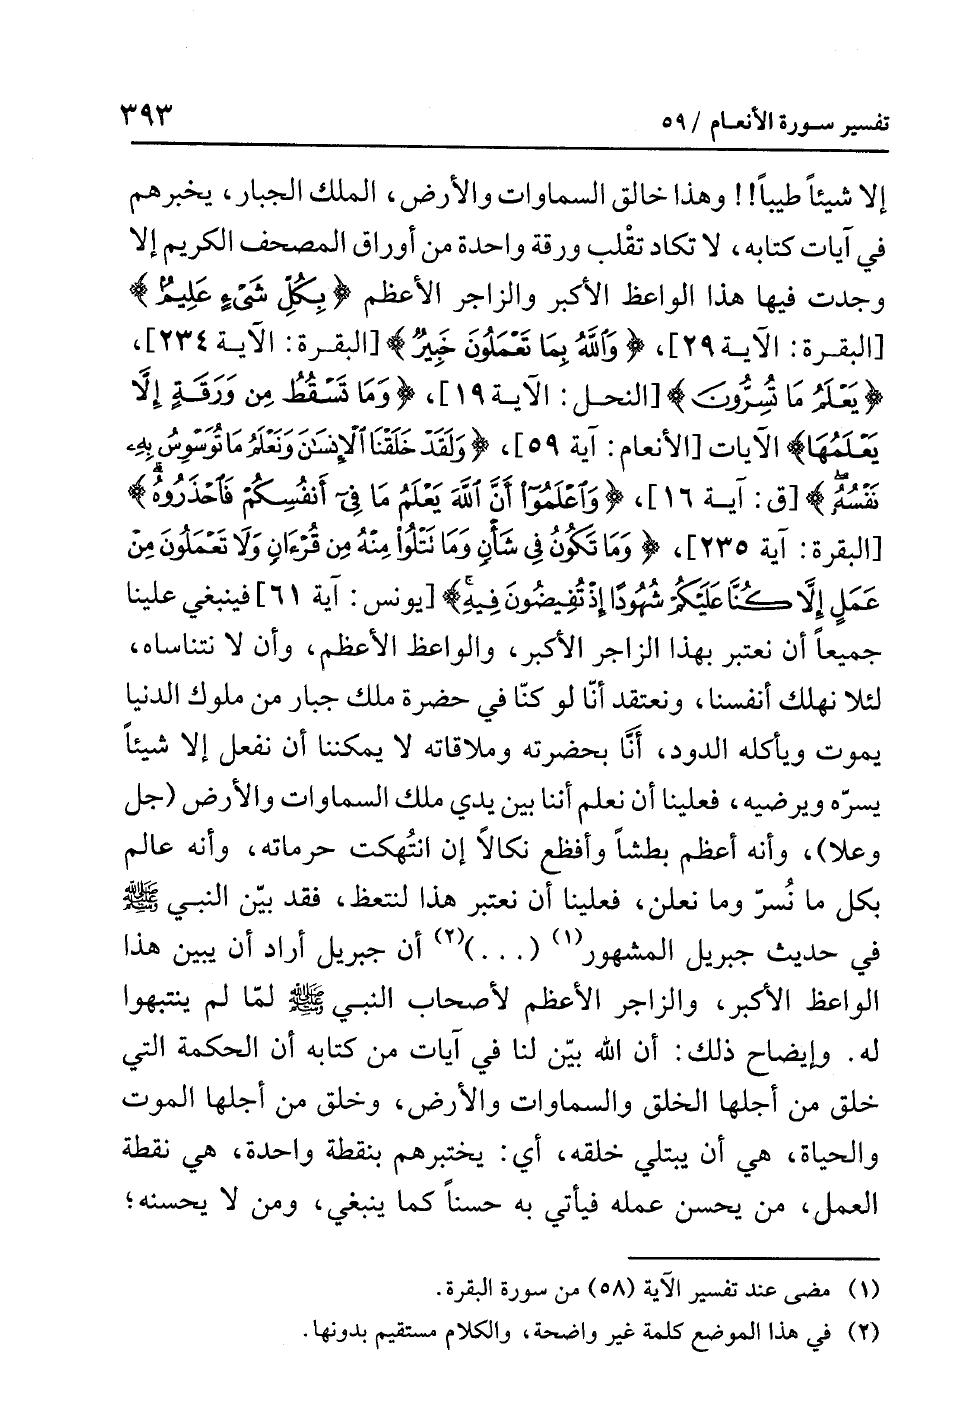 تفسير سورة الأنعام / ٥٩
٣٩٣
إلا شيئاً طيباً!! وهذا خالق السماوات والأرض، الملك الجبار، يخبرهم
في آيات كتابه، لا تكاد تقْلب ورقة واحدة من أوراق المصحف الكريم إلا
وجدت فيها هذا الواعظ الأكبر والزاجر الأعظم ﴿بِكُلِّ شَيْءٍ عَلِيمٌ﴾
[البقرة: الآية ٢٩]، ﴿وَاللَّهُ بِمَا تَعْمَلُونَ خَبِيرٌ﴾ [البقرة: الآية ٢٣٤]،
﴿يَعْلَمُ مَا تُسِرُّونَ﴾ [النحل: الآية ١٩]، ﴿وَمَا تَسْقُطُ مِن وَرَقَةٍ إِلَّا
يَعْلَمُهَا﴾ الآيات [الأنعام: آية ٥٩]، ﴿وَلَقَدْ خَلَقْنَا الْإِنسَٰنَ وَنَعْلَمُ مَا تُوَسْوِسُ بِهِۦ
نَفْسُهُۥ﴾ [ق: آية ١٦]، ﴿وَاعْلَمُوٓا أَنَّ اللَّهَ يَعْلَمُ مَا فِىٓ أَنفُسِكُمْ فَاحْذَرُوهُ﴾
[البقرة: آية ٢٣٥]، ﴿وَمَا تَكُونُ فِى شَأْنٍ وَمَا تَتْلُوا۟ مِنْهُ مِن قُرْءَانٍ وَلَا تَعْمَلُونَ مِنْ
عَمَلٍ إِلَّا كُنَّا عَلَيْكُمْ شُهُودًا إِذْ تُفِيضُونَ فِيهِ﴾ [يونس: آية ٦١] فينبغي علينا
جميعاً أن نعتبر بهذا الزاجر الأكبر، والواعظ الأعظم، وأن لا نتناساه،
لئلا نهلك أنفسنا، ونعتقد أنّا لو كنّا في حضرة ملك جبار من ملوك الدنيا
يموت ويأكله الدود، أنَّا بحضرته وملاقاته لا يمكننا أن نفعل إلا شيئاً
يسرّه ويرضيه، فعلينا أن نعلم أننا بين يدي ملك السماوات والأرض (جل
وعلا)، وأنه أعظم بطشاً وأفظع نكالاً إن انتُهكت حرماته، وأنه عالم
بكل ما نُسرّ وما نعلن، فعلينا أن نعتبر هذا لنتعظ، فقد بيّن النبي ﷺ
في حديث جبريل المشهور(١) (...)(٢) أن جبريل أراد أن يبين هذا
الواعظ الأكبر، والزاجر الأعظم لأصحاب النبي ﷺ لمّا لم ينتبهوا
له. وإيضاح ذلك: أن الله بيّن لنا في آيات من كتابه أن الحكمة التي
خلق من أجلها الخلق والسماوات والأرض، وخلق من أجلها الموت
والحياة، هي أن يبتلي خلقه، أي: يختبرهم بنقطة واحدة، هي نقطة
العمل، من يحسن عمله فيأتي به حسناً كما ينبغي، ومن لا يحسنه؛
(١) مضى عند تفسير الآية (٥٨) من سورة البقرة.
(٢) في هذا الموضع كلمة غير واضحة، والكلام مستقيم بدونها.